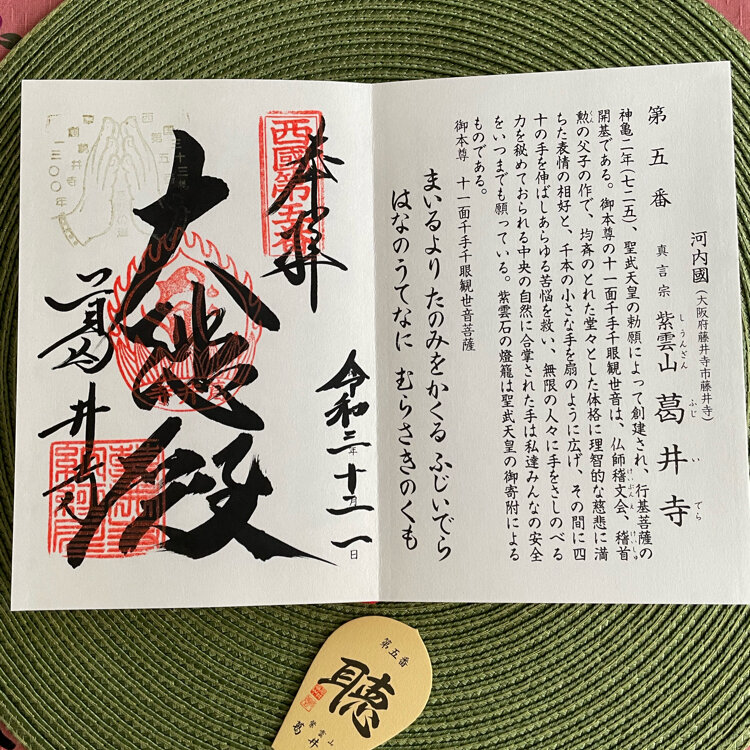 河内國（大阪府藤井寺市藤井寺）
第五番　真言宗　紫雲山　葛井寺
しうんざん
ふじ　い　でら
神亀二年（七二五）、聖武天皇の勅願によって創建され、行基菩薩の
開基である。御本尊の十一面千手千眼観世音は、仏師稽文会、稽首
勲の父子の作で、均斉のとれた堂々とした体格に理智的な慈悲に満
ちた表情の相好と、千本の小さな手を扇のように広げ、その間に四
十の手を伸ばしあらゆる苦悩を救い、無限の人々に手をさしのべる
力を秘めておられる中央の自然に合掌された手は私達みんなの安全
をいつまでも願っている。紫雲石の燈籠は聖武天皇の御寄附による
ものである。
御本尊　十一面千手千眼観世音菩薩
まいるより たのみをかくる ふじいでら
はなのうてなに むらさきのくも
令和三年十二月一日
奉拝
西國第五番
大悲殿
葛井寺
第五番
聴
紫雲山
葛井